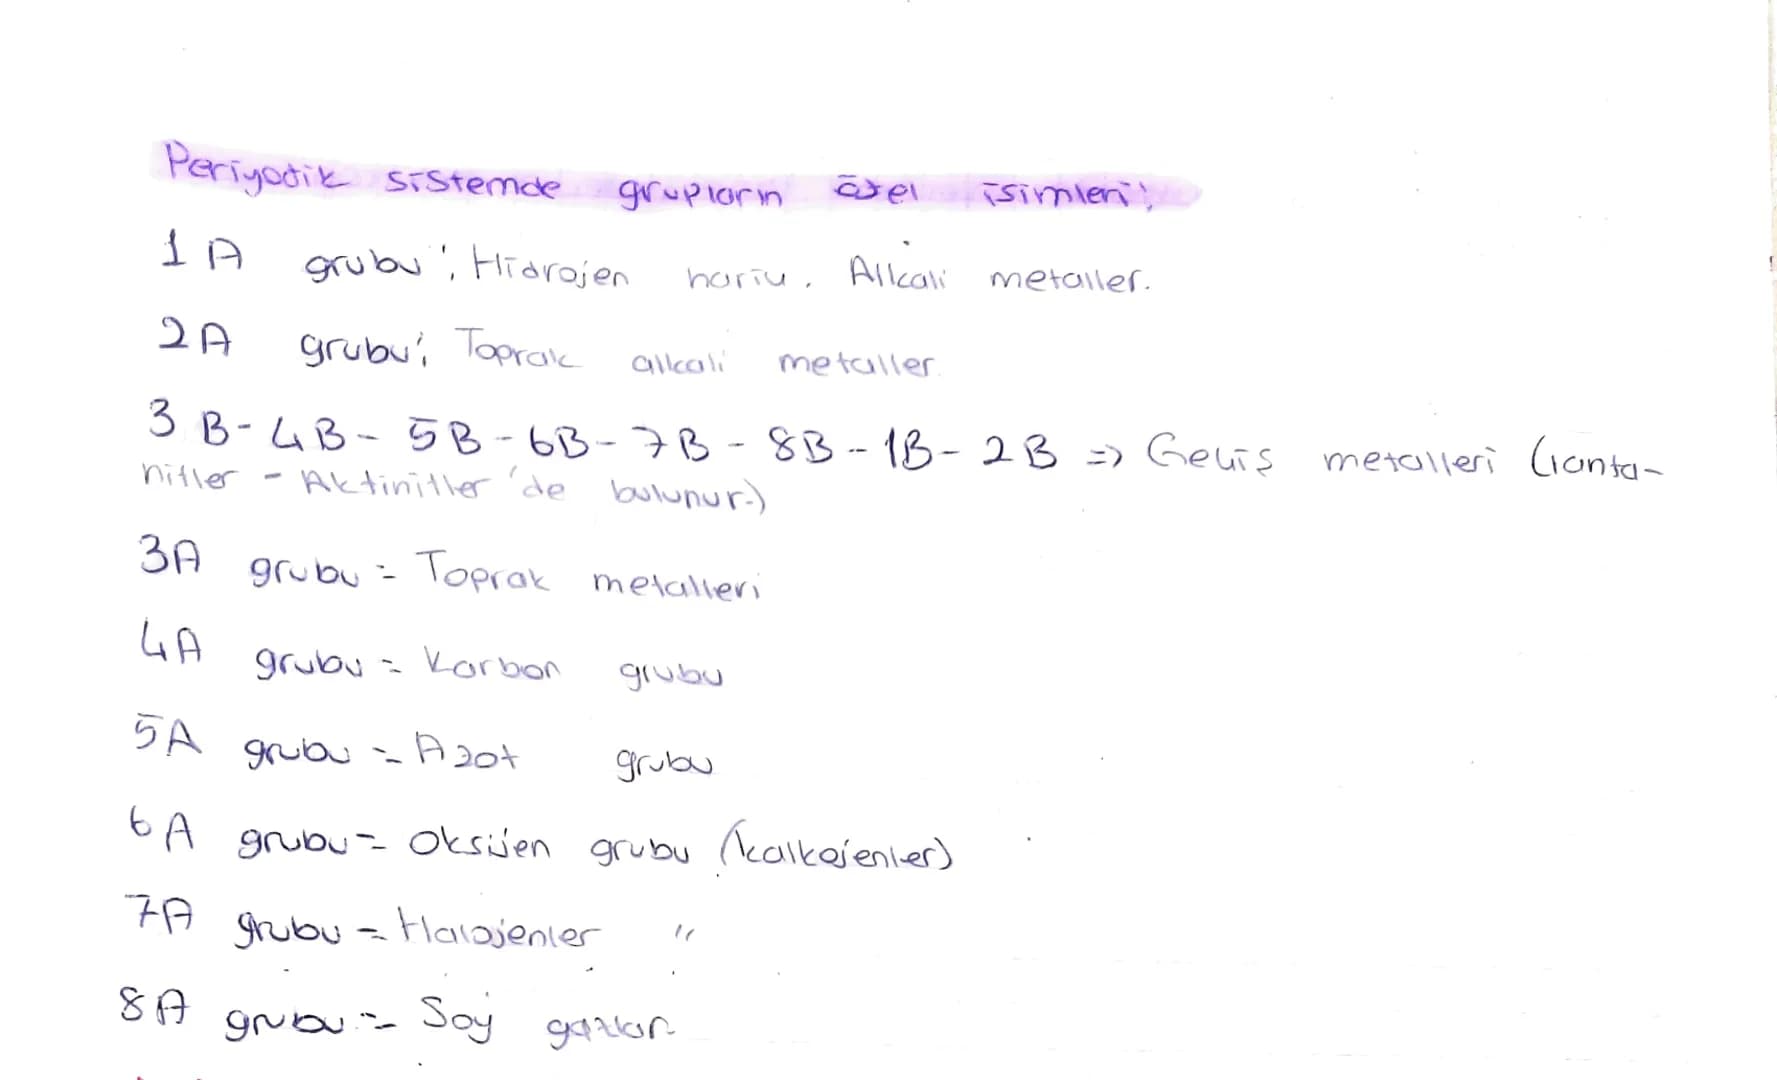 Periyodik sistemde grupların özel isimleri;
1A grubu; Hidrojen hariç. Alkali metaller.
2A grubu; Toprak alkali metaller.
3B-4B-5B-6B-7B-8B-1B-2B => Geçiş metalleri (lanta-
nitler - Aktinitler'de bulunur.)
3A grubu = Toprak metalleri
4A grubu = Karbon grubu
5A grubu = Azot grubu
6A grubu = Oksijen grubu (kalkojenler)
7A grubu = Halojenler "
8A grubu = Soy gazlar